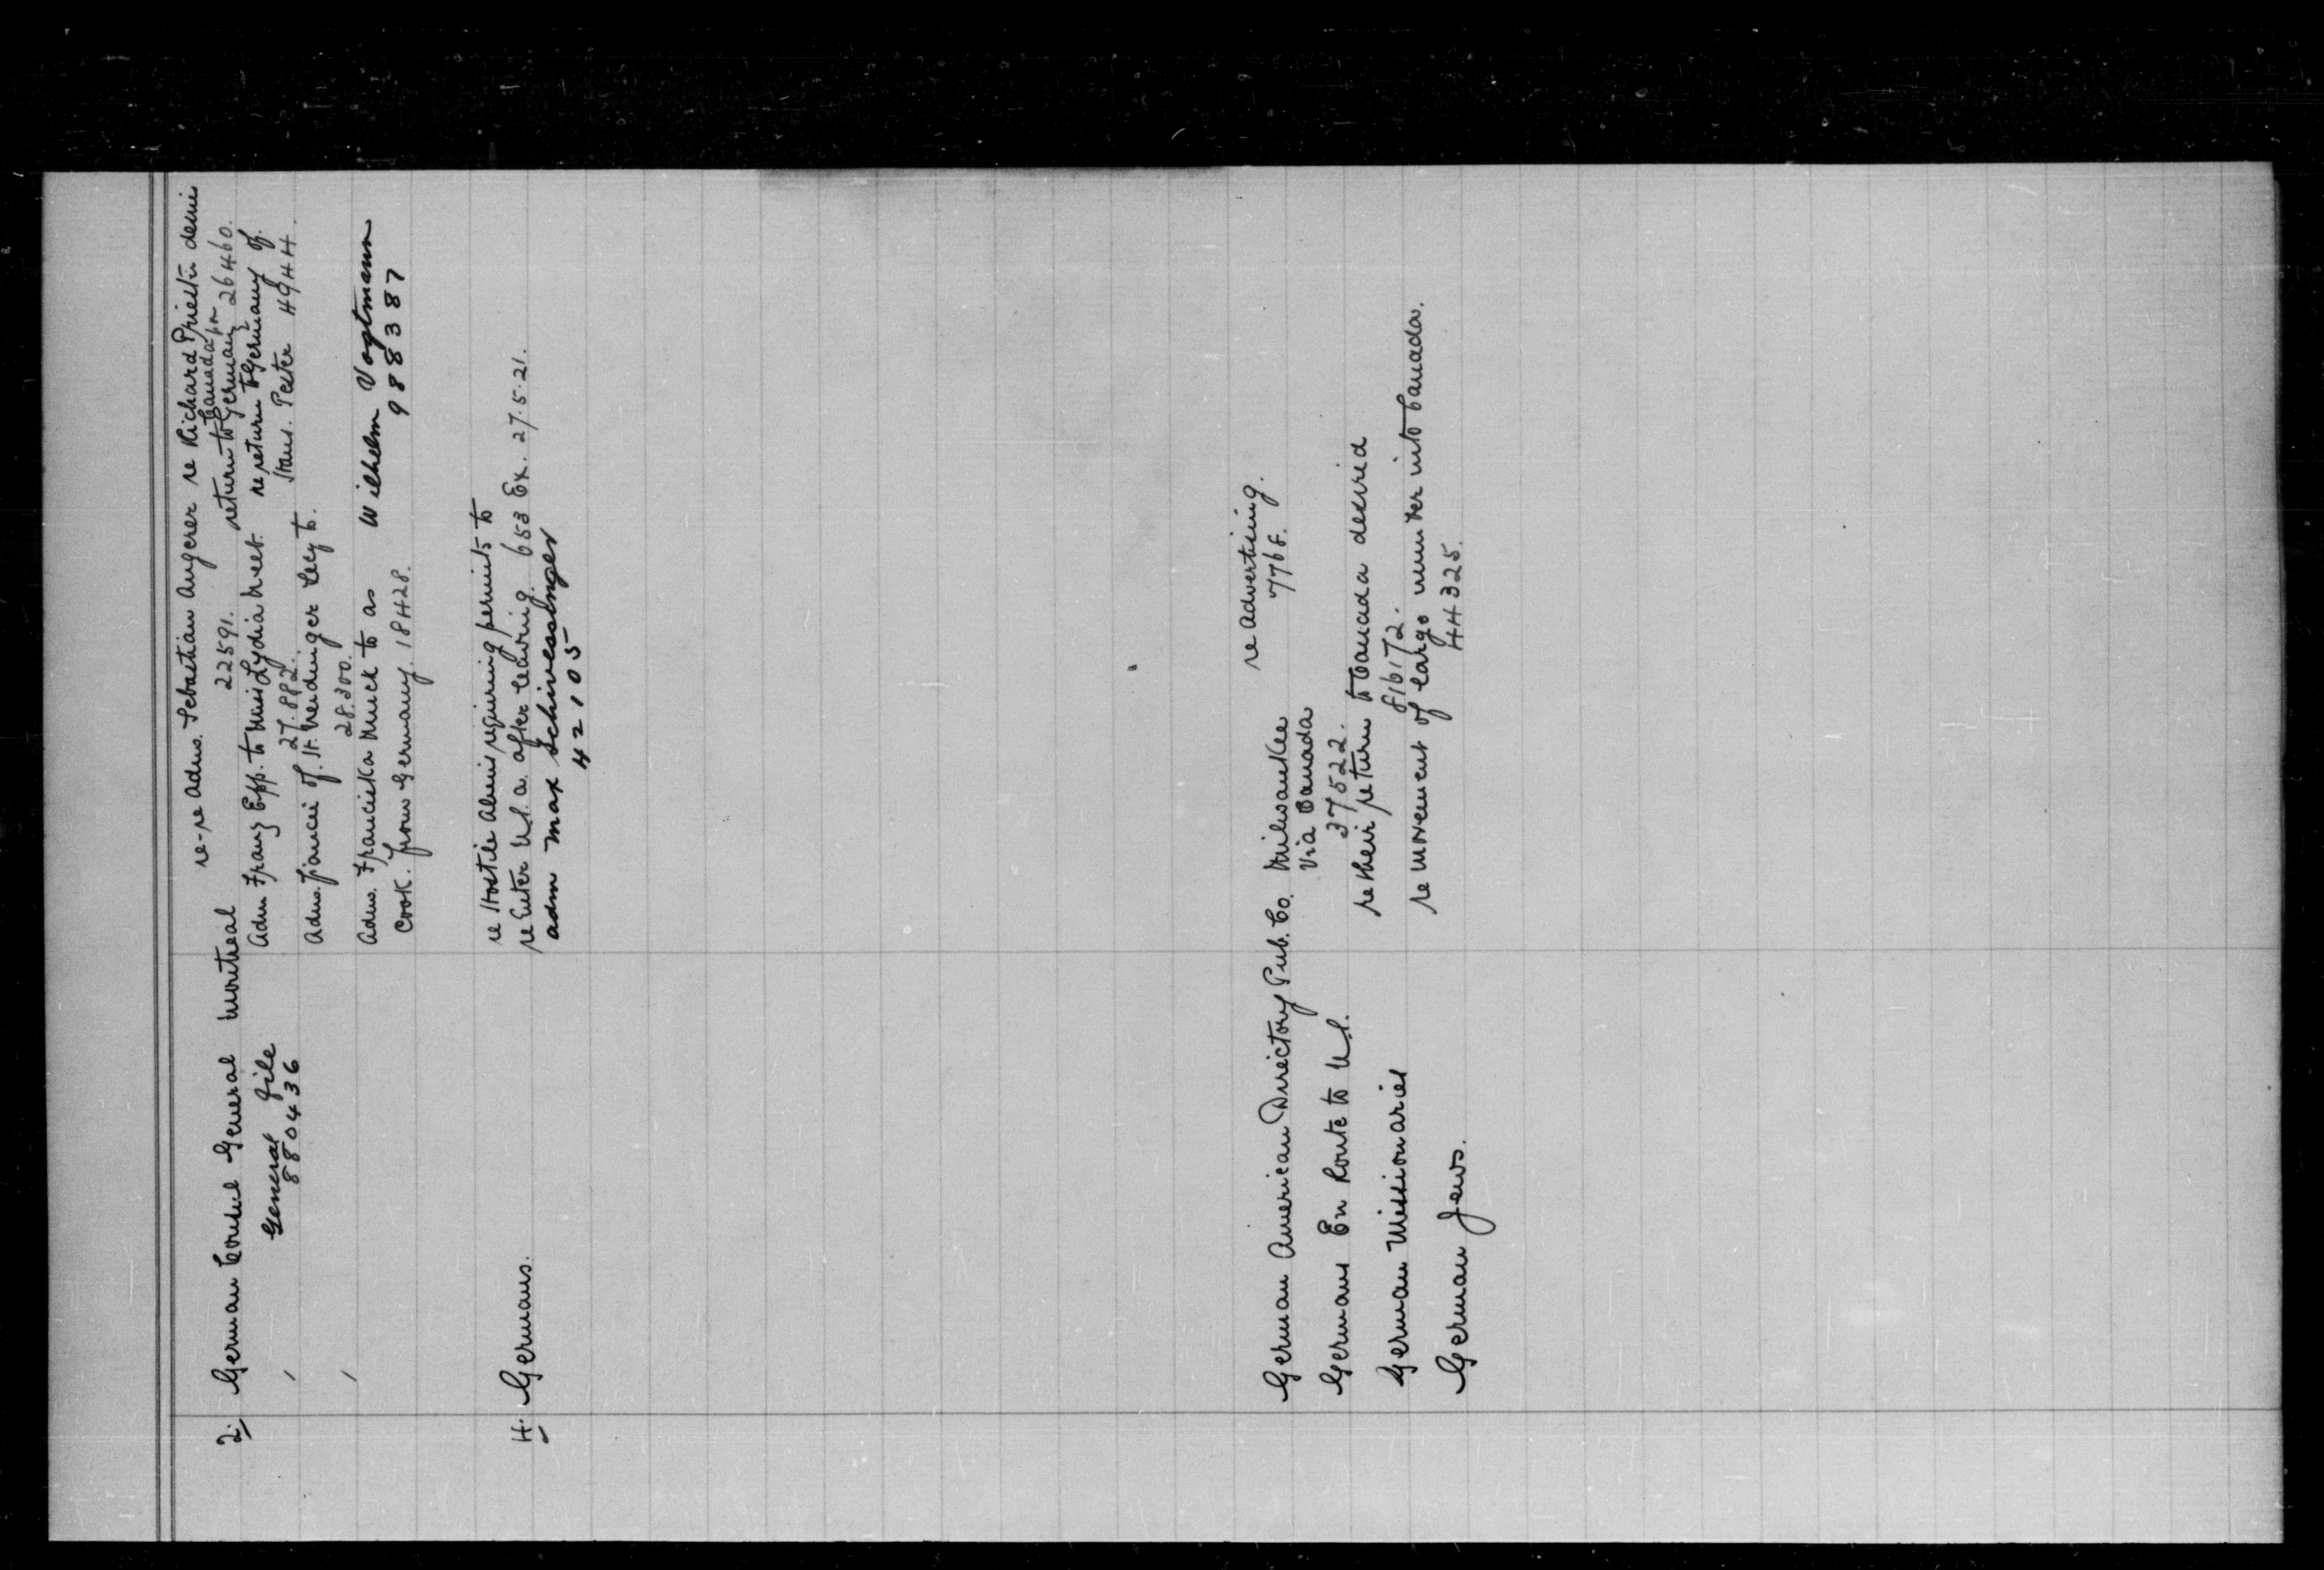 re-re Adms. Sebastian Angerer re Richard Priestu desire
22591. Canada for
2. German Consul General Montreal return to Germany 26460.
Adm Franz Epp. to Miss Lydia re return to Germany of
General File 27.882. Hans. Pester 49444.
880436
Adms. fiancee of. St. Heidinger
28.300.
Adms. Franciska Muck to as Wilhelm Vogtmann
988387
Cook. from Germany. 18428.
re Hostile Aliens requiring permits to
4. Germans. re Enter U.S.A. after leaving. 653 Ex. 27.5.21.
adm Max Schivesslinger
42105
re Advertising.
German American Directory Pub. Co. Milwaukee 7768.
Via Canada
Germans En Route to U.S. 37522.
re their return to Canada desired
German Missionaries 816172.
re movement of large number into Canada.
German Jews. 44325.